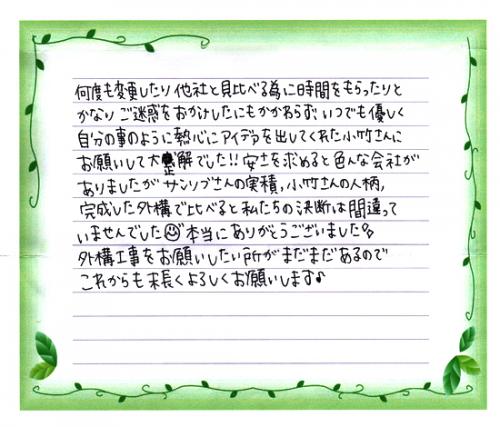 何度も変更したり他社と見比べる為に時間をもらったりと
かなりご迷惑をおかけしたにもかかわらず、いつでも優しく
自分の事のように熱心にアイデアを出してくれた小竹さんに
お願いして大正解でした!! 安さを求めると色んな会社が
ありましたがサンリブさんの実積、小竹さんの人柄、
完成した外構で比べると私たちの決断は間違って
いませんでした☺本当にありがとうございました♪
外構工事をお願いしたい所がまだまだあるので
これからも末長くよろしくお願いします♪